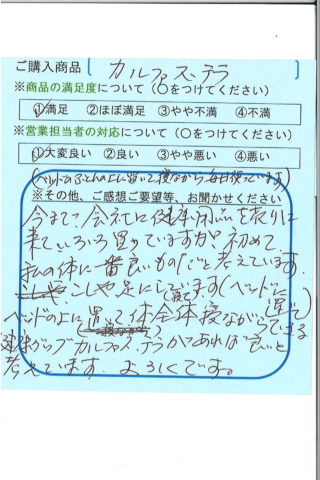 ご購入商品 〔 カルファス・テラ
※商品の満足度について（○をつけてください）
①満足 ②ほぼ満足 ③やや不満 ④不満
※営業担当者の対応について（○をつけてください）
①大変良い ②良い ③やや悪い ④悪い
(ベットのふとんの上に置いて寝ながら毎日使っています)
※その他、ご感想ご要望等、お聞かせください
今まで会社に健康用品を売りに
来ていろいろ買っていますが、初めて
私の体に一番良いものだと考えています。
こしや足に
ベッドの上に置いて体全体寝ながら
カルファス・テラがあれば良いと
考えています。よろしくです。